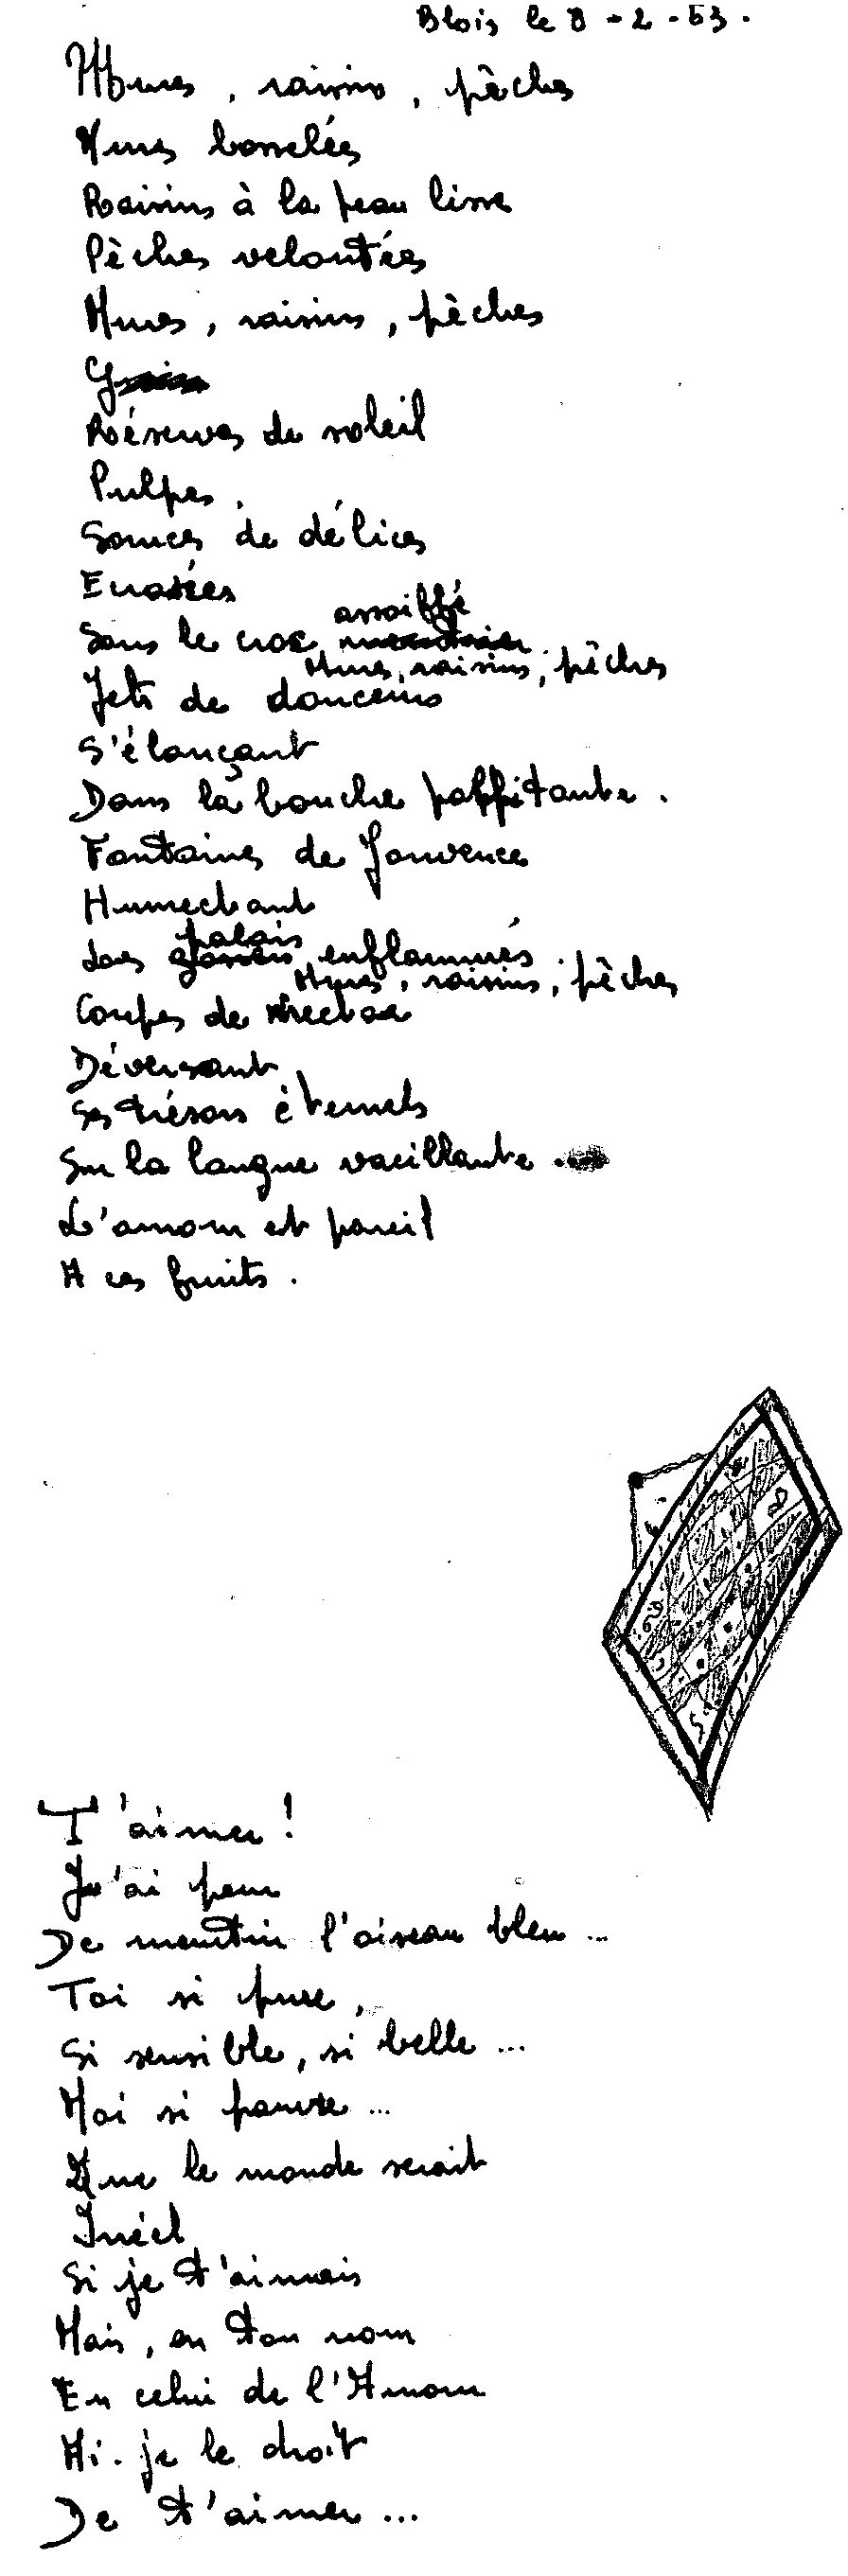 Blois le 8 - 2 - 53.
Mures, raisins, pèches
Mures bosselées
Raisins à la peau lisse
Pèches veloutées
Mures, raisins, pèches
Réserves de soleil
Pulpes,
Sources de délices
Ecrasées
assoiffé
Sous le croc
Mures, raisins, pèches
Jets de douceurs
S'élançant
Dans la bouche palpitante.
Fontaines de Jouvence
Humectant
palais
Les enflammés
Mures, raisins, pèches
Coupes de nectar
Déversant
Ses trésors éternels
Sur la langue vacillante.
L'amour est pareil
A ces fruits.
T'aimer!
J'ai peur
De meurtrir l'oiseau bleu...
Toi si pure,
Si sensible, si belle...
Moi si pauvre...
Que le monde serait
Irréel
Si je t'aimais
Mais, en ton nom
En celui de l'Amour
Ai-je le droit
De t'aimer...